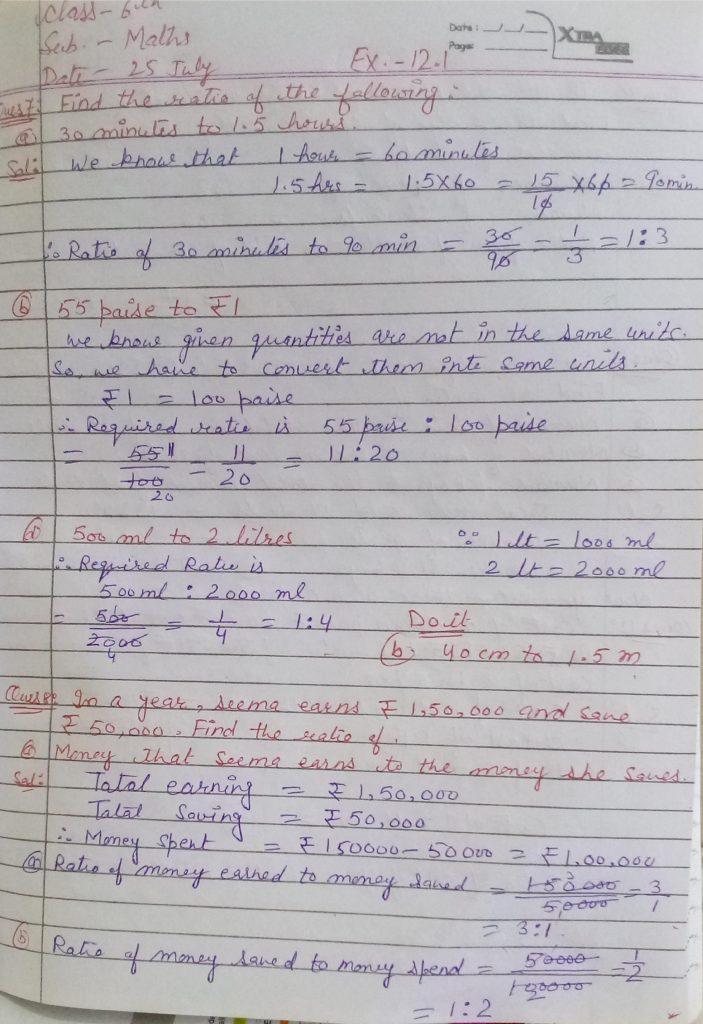 Class - 6th
Sub. - Maths
Date - 25 July
Ex. - 12.1
Date: __/__/__
Page
XTRA
Ques7: Find the ratio of the fallowing:
(a) 30 minutes to 1.5 hours.
Sol: We know that 1 hour = 60 minutes
1.5 hrs = 1.5×60 = 15/10 ×60 = 90min.
∴ Ratio of 30 minutes to 90 min = 30/90 = 1/3 = 1:3
(c) 55 paise to ₹1
we know given quantities are not in the same units.
So, we have to convert them into same units.
₹1 = 100 paise
∴ Required ratio is 55 paise : 100 paise
= 55 11/100 20 = 11/20 = 11:20
(d) 500 ml to 2 litres
∵ 1 lt = 1000 ml
∴ Required Ratio is
2 lt = 2000 ml
500ml : 2000 ml
= 500/2000 4 = 1/4 = 1:4
Do it
(b) 40 cm to 1.5 m
Ques8: In a year, Seema earns ₹ 1,50,000 and save
₹ 50,000. Find the ratio of.
(a) Money that Seema earns to the money she saves.
Sol: Tatal earning = ₹ 1,50,000
Tatal Saving = ₹ 50,000
∴ Money Spent = ₹ 150000 - 50000 = ₹ 1,00,000
(a) Ratio of money earned to money saved = 150000 3/50000 = 3/1
= 3:1.
(b) Ratio of money saved to money spend = 50000/100000 2 = 1/2
= 1:2